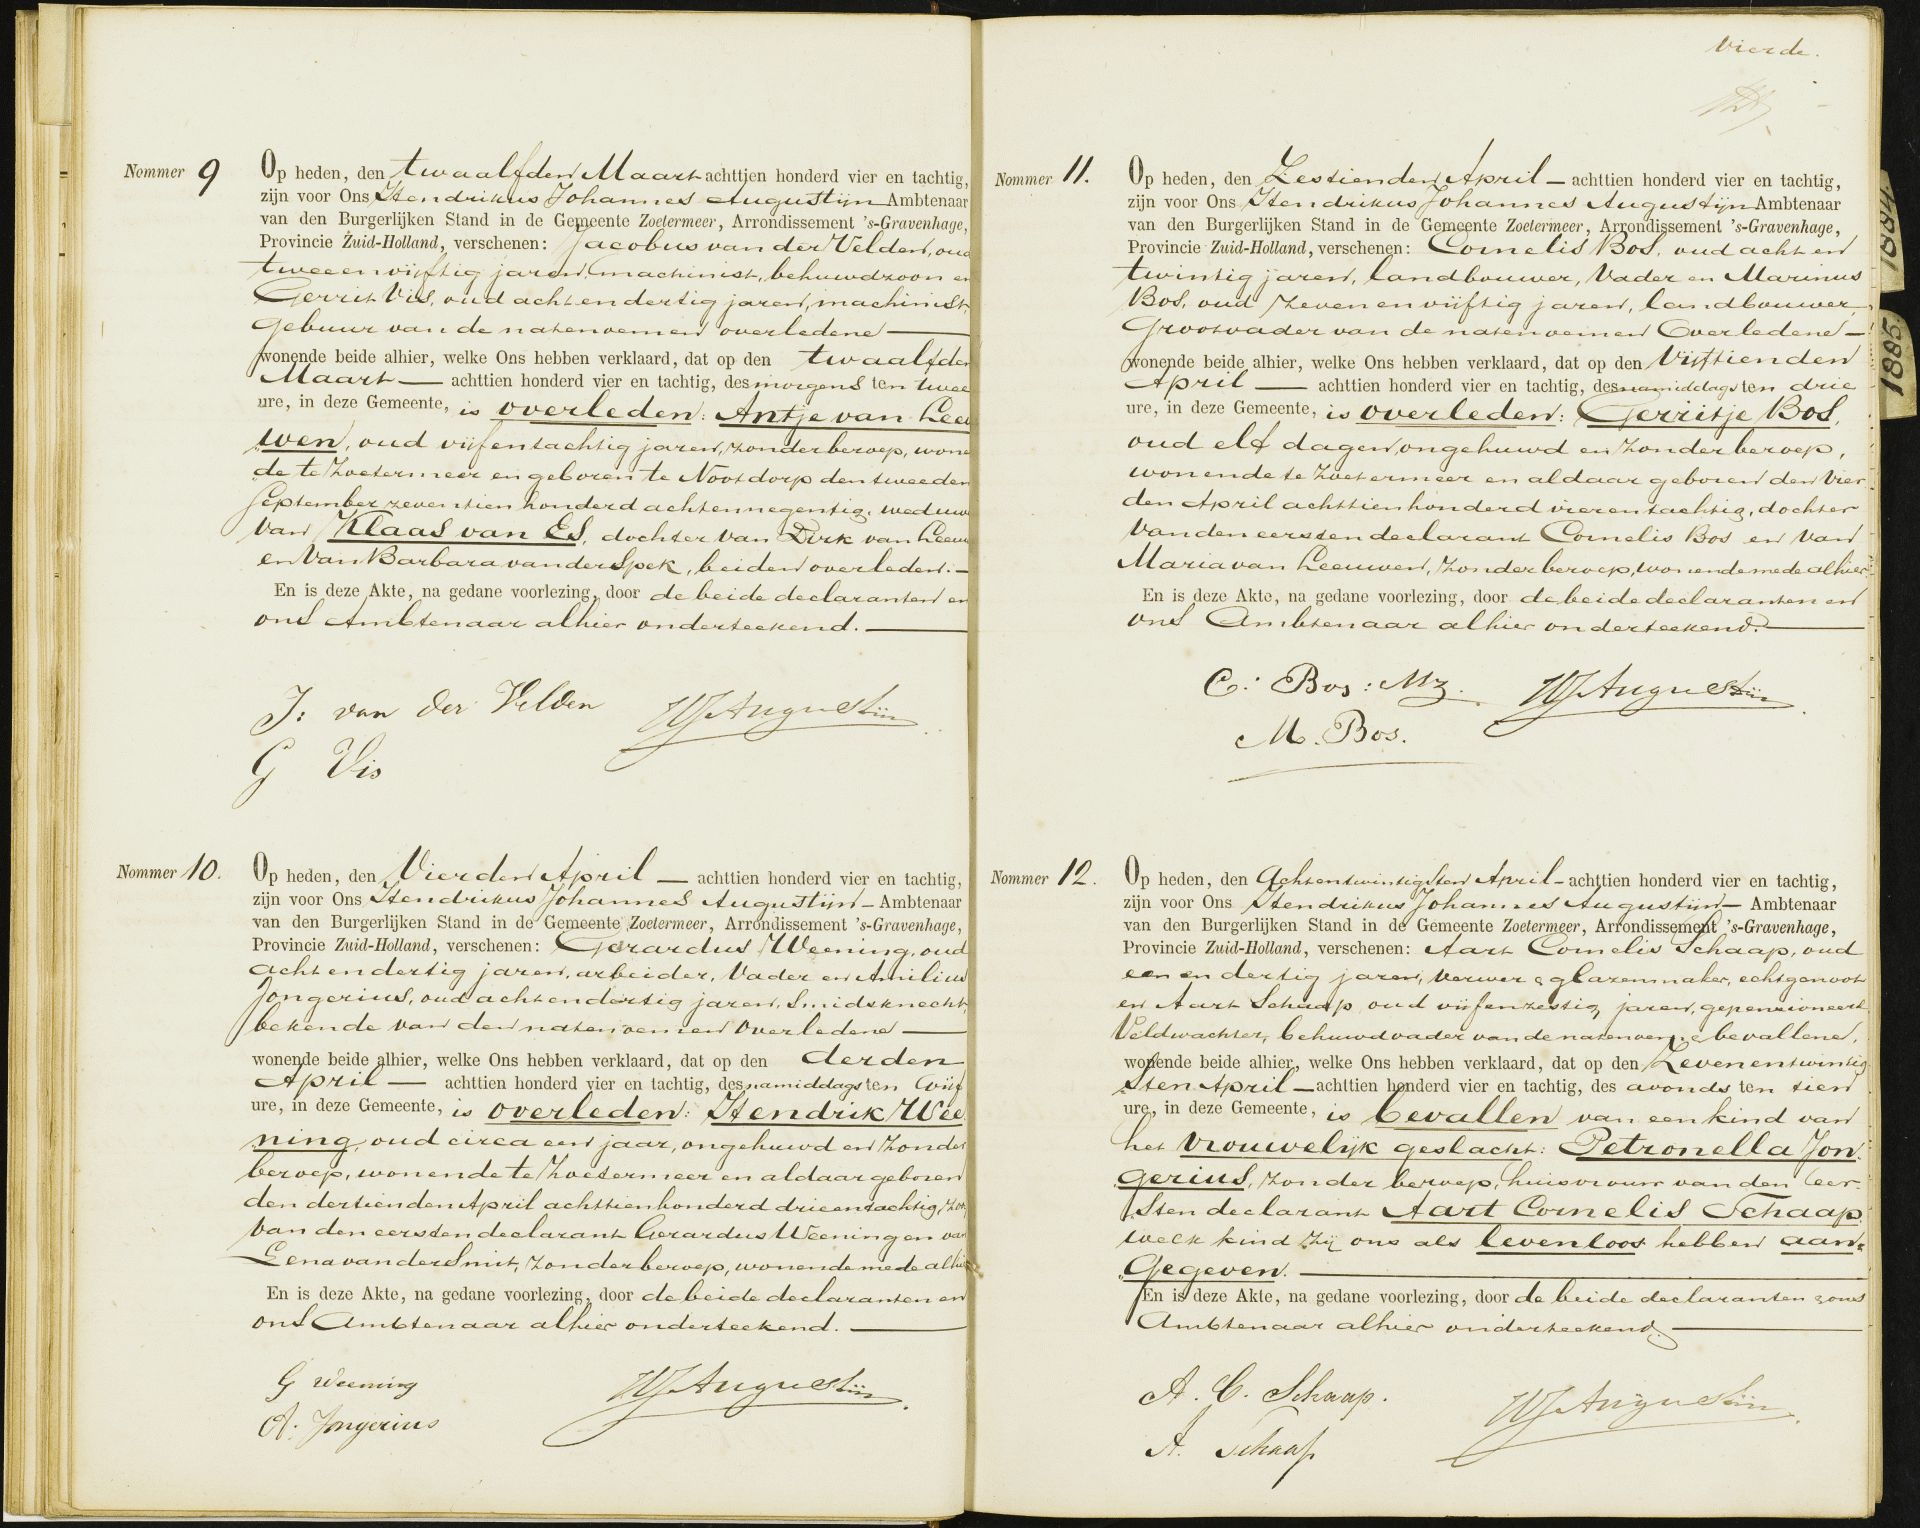 Nommer 9
Op heden, den twaalfden Maart achttien honderd vier en tachtig,
zijn voor Ons Hendrikus Johannes Augustijn Ambtenaar
van den Burgerlijken Stand in de Gemeente Zoetermeer, Arrondissement 's-Gravenhage,
Provincie Zuid-Holland, verschenen: Jacobus van der Velden, oud
tweeenvijftig jaren, machinist, behuwdzoon en
Gerrit Vis, oud achtendertig jaren, machinist,
gebuur van de natenoemen overledene —
wonende beide alhier, welke Ons hebben verklaard, dat op den twaalfden
Maart — achttien honderd vier en tachtig, des morgens ten twee
ure, in deze Gemeente, is overleden: Antje van Leeu
wen, oud vijfentachtig jaren, zonder beroep, wonen
de te Zoetermeer en geboren te Nootdorp den tweeden
September zeventien honderd achtennegentig, weduwe
van Klaas van Es, dochter van Dirk van Leeuw
en van Barbara van der Spek, beiden overleden. —
En is deze Akte, na gedane voorlezing, door de beide declaranten en
ons Ambtenaar alhier onderteekend. —
J: van der Velden HJAugustijn
G Vis
Nommer 10.
Op heden, den Vierden April — achttien honderd vier en tachtig,
zijn voor Ons Hendrikus Johannes Augustijn — Ambtenaar
van den Burgerlijken Stand in de Gemeente Zoetermeer, Arrondissement 's-Gravenhage,
Provincie Zuid-Holland, verschenen: Gerardus Weening, oud
acht en dertig jaren, arbeider, Vader en Amilius
Jongerius, oud achtendertig jaren, Smidsknecht,
bekende van den natenoemen overledene —
wonende beide alhier, welke Ons hebben verklaard, dat op den derden
April — achttien honderd vier en tachtig, des namiddags ten vijf
ure, in deze Gemeente, is overleden: Hendrik Wee
ning, oud circa een jaar, ongehuwd en zonder
beroep, wonende te Zoetermeer en aldaar geboren
den dertienden April achttienhonderd drieentachtig, zoo
van den eersten declarant Gerardus Weening en van
Lena van der Smit, zonder beroep, wonende mede alhier
En is deze Akte, na gedane voorlezing, door de beide declaranten en
ons Ambtenaar alhier onderteekend. —
G Weening HJAugustijn
A. Jongerius
Vierde.
Nommer 11.
Op heden, den Zestienden April — achttien honderd vier en tachtig,
zijn voor Ons Hendrikus Johannes Augustijn Ambtenaar
van den Burgerlijken Stand in de Gemeente Zoetermeer, Arrondissement 's-Gravenhage,
Provincie Zuid-Holland, verschenen: Cornelis Bos, oud acht en
twintig jaren, landbouwer, Vader en Marinus
Bos, oud zeven en vijftig jaren, landbouwer,
Grootvader van de natenoemen Overledene —
wonende beide alhier, welke Ons hebben verklaard, dat op den Vijftienden
April — achttien honderd vier en tachtig, des namiddags ten drie
ure, in deze Gemeente, is overleden: Gerritje Bos,
oud elf dagen, ongehuwd en zonder beroep,
wonende te Zoetermeer en aldaar geboren den Vier
den April achttienhonderd vierentachtig, dochter
van den eersten declarant Cornelis Bos en van
Maria van Leeuwen, zonder beroep, wonende mede alhier
En is deze Akte, na gedane voorlezing, door de beide declaranten en
ons Ambtenaar alhier onderteekend. —
C: Bos: Mz. HJAugustijn
M. Bos.
Nommer 12.
Op heden, den Achtentwintigsten April — achttien honderd vier en tachtig,
zijn voor Ons Hendrikus Johannes Augustijn — Ambtenaar
van den Burgerlijken Stand in de Gemeente Zoetermeer, Arrondissement 's-Gravenhage,
Provincie Zuid-Holland, verschenen: Aart Cornelis Schaap, oud
een en dertig jaren, verwer & glazenmaker, echtgenoot
en Aart Schaap oud vijfenzestig jaren, gepensioneerd
Veldwachter, behuwdvader van de bevallene,
wonende beide alhier, welke Ons hebben verklaard, dat op den Zevenentwintig
sten April — achttien honderd vier en tachtig, des avonds ten tien
ure, in deze Gemeente, is bevallen van een kind van
het vrouwelijk geslacht: Petronella Jon
gerius, zonder beroep, huisvrouw van den eer
sten declarant Aart Cornelis Schaap
welk kind zij ons als levenloos hebben aan
Gegeven. —
En is deze Akte, na gedane voorlezing, door de beide declaranten & ons
Ambtenaar alhier onderteekend. —
A. C. Schaap. HJAugustijn
A. Schaap
1884.
1885.